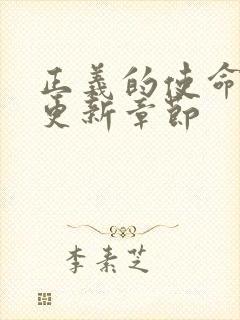 正義的使命
更新章節
李素芝